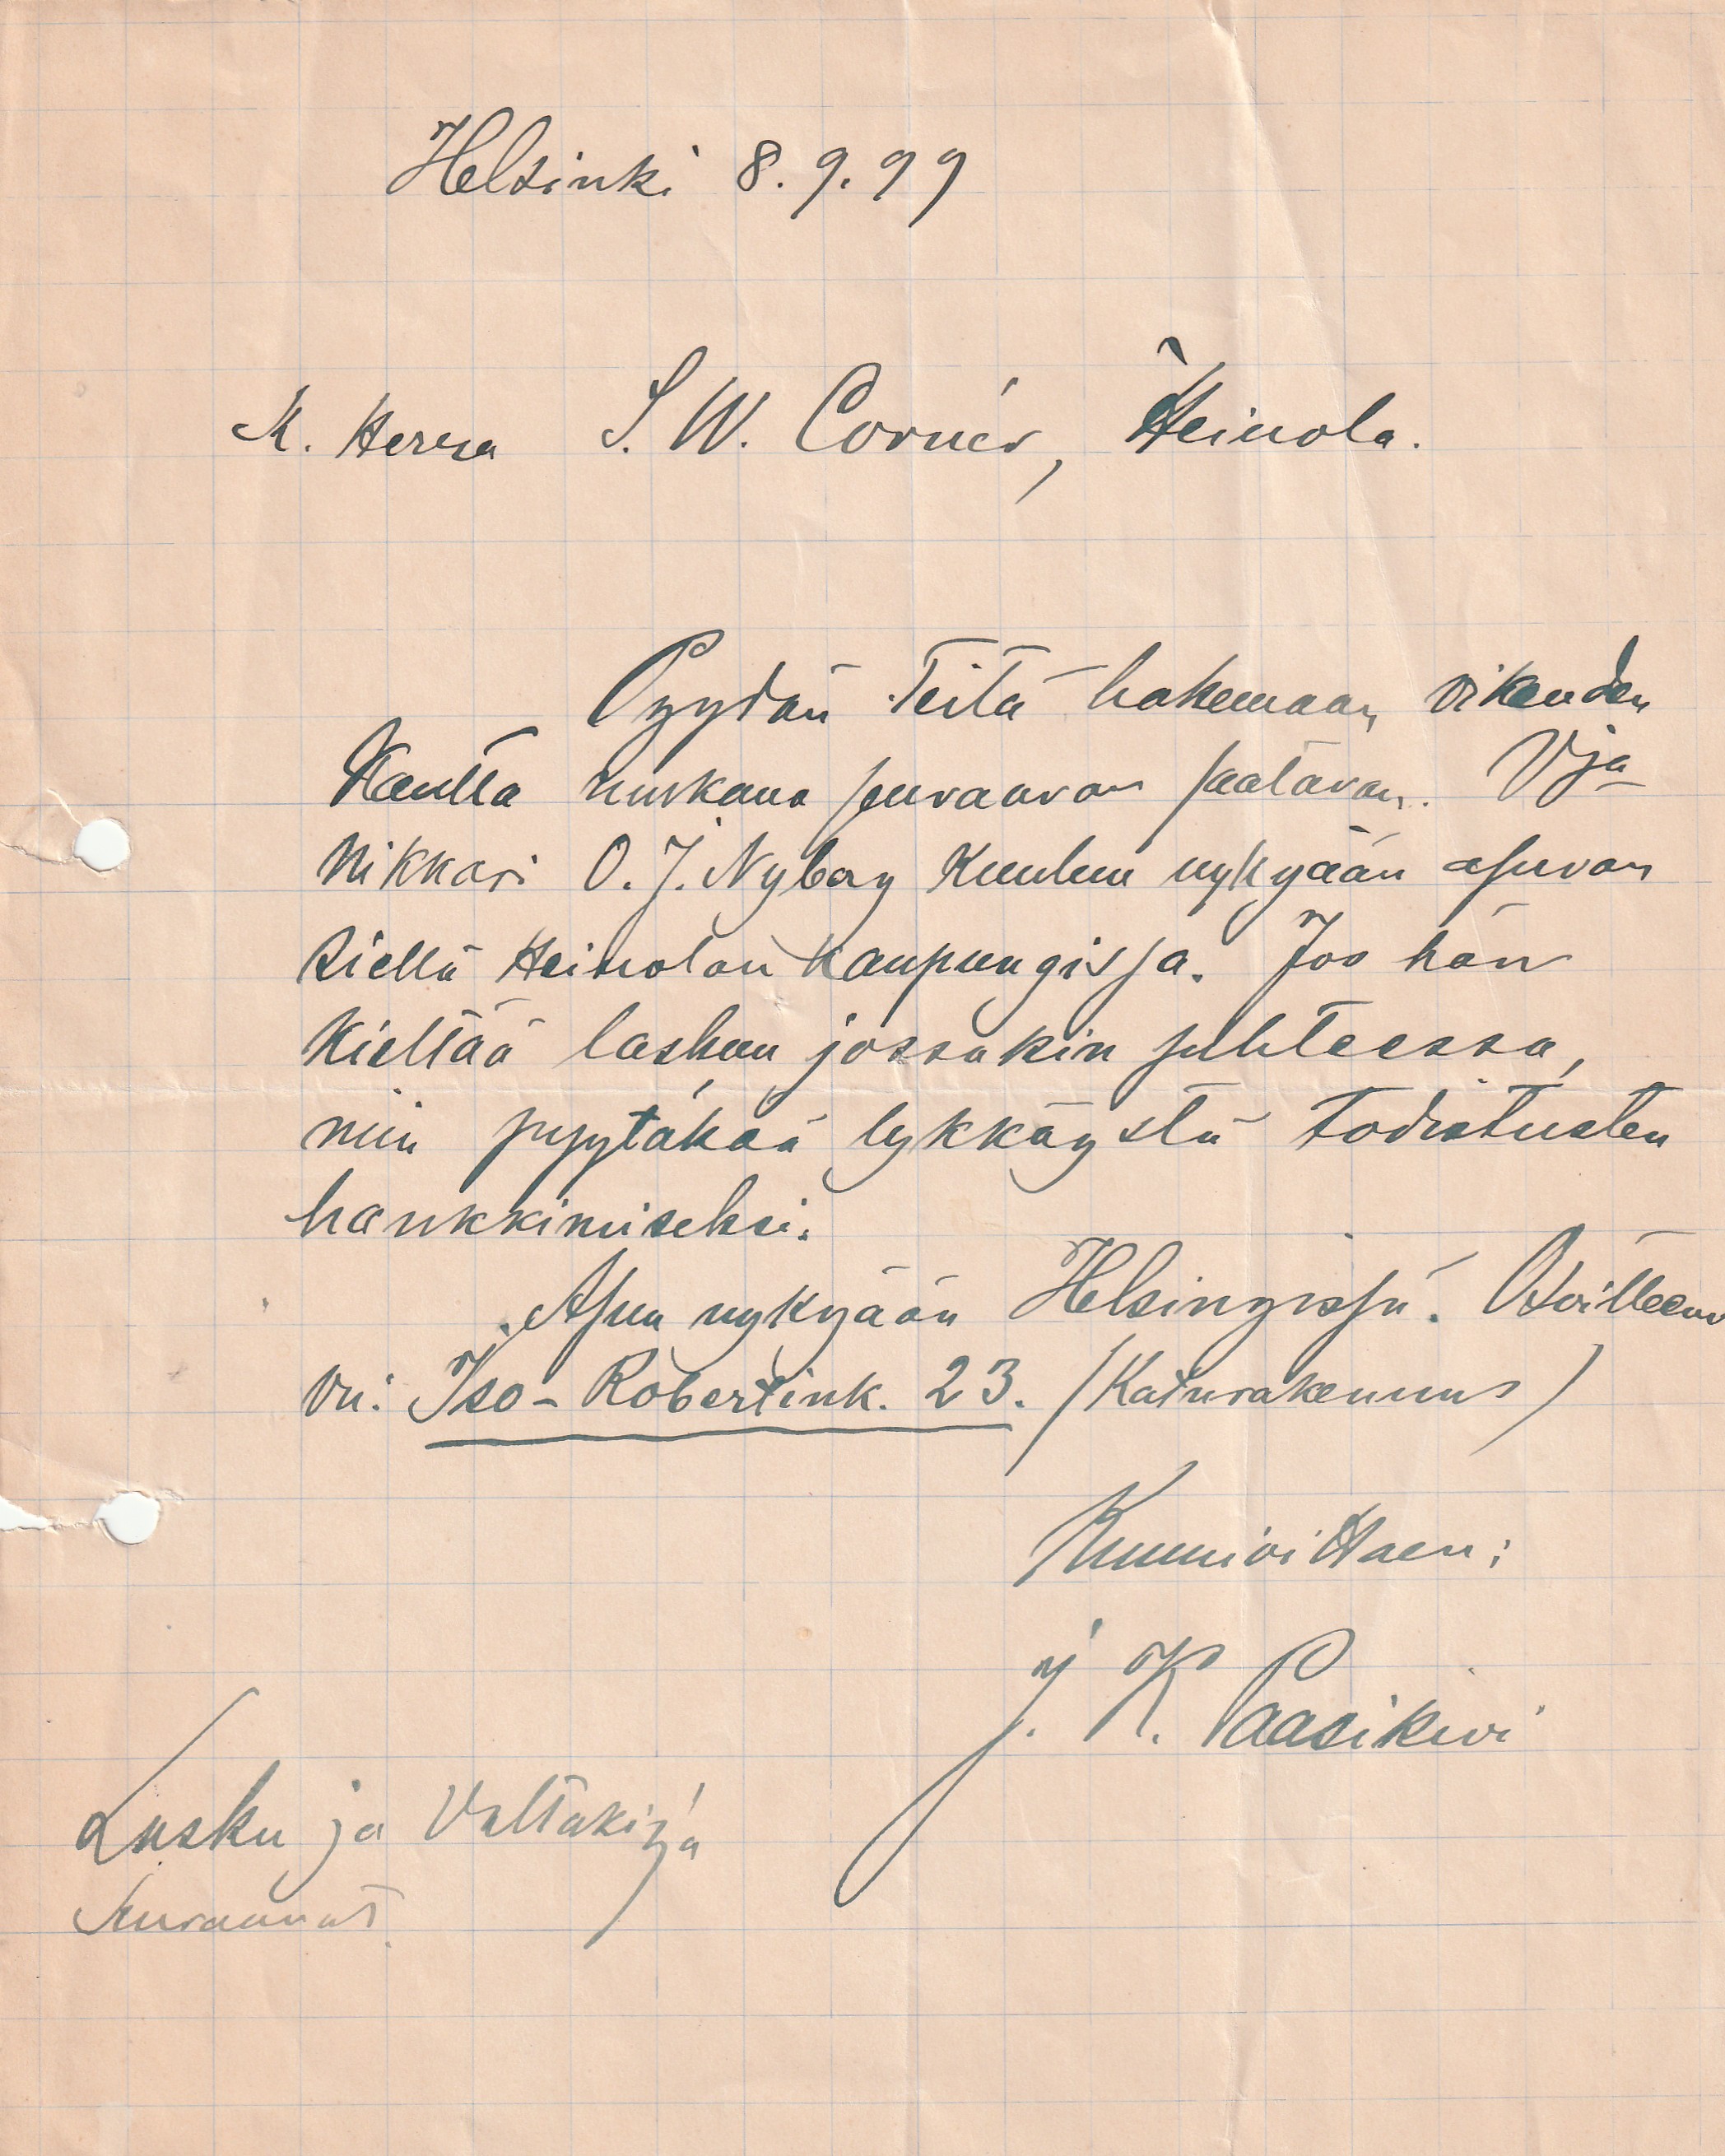 Helsinki 8.9.99
K. Herra S. W. Cornér, Heinola.
Pyydän Teitä hakemaan oikeuden
kautta mukana seuraavan saatavan. Vja
Nikkari O. J. Nyberg kuuluu nykyään asuvan
siellä Heinolan kaupungissa. Jos hän
kieltää laskun jossakin suhteessa,
niin pyytäkää lykkäystä todistusten
hankkimiseksi.
Asun nykyään Helsingissä. Osoitteeni
on: Iso-Robertink. 23. (Katurakennus)
Kunnioittaen:
J. K. Paasikivi
Lasku ja Valtakirja
seuraavat.